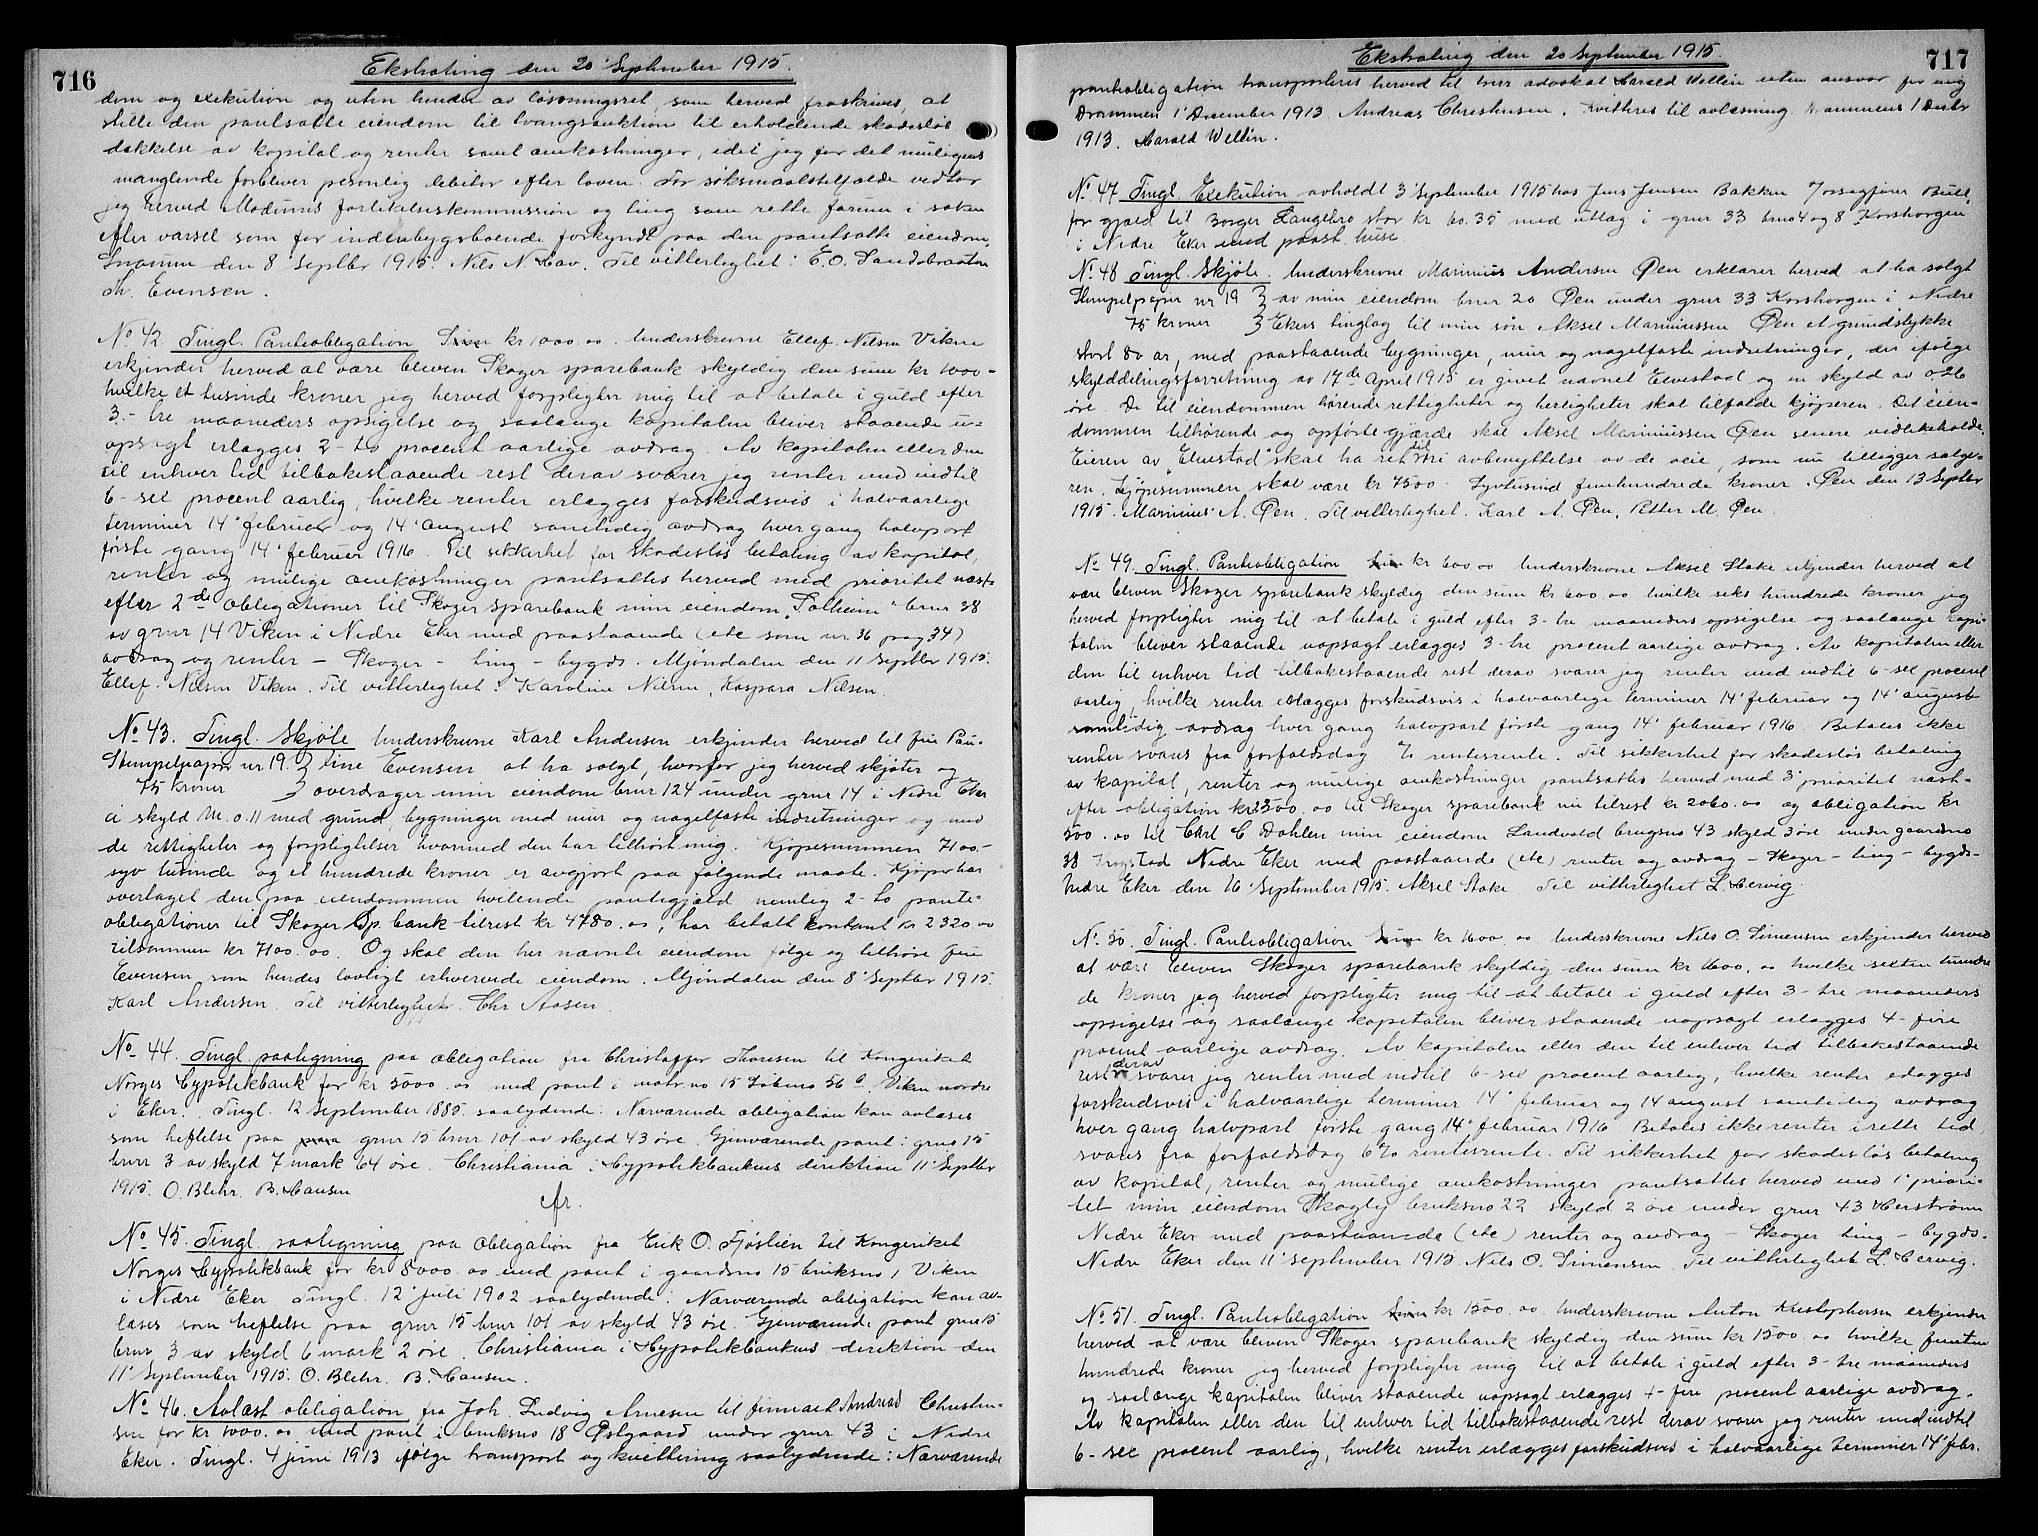 716
Ekstrating den 20' September 1915.
dom og exekution og uten hinder av løsningsret, som herved fraskrives, at
stille den pantsatte eiendom til tvangsauktion til erholdende skadesløs
dækkelse av kapital og renter samt omkostninger, idet jeg for det muligens
manglende forbliver personlig debitor efter loven. For søksmaalstilfælde vedtar
jeg herved Modums forlikelseskommission og ting som rette forum i saken
efter varsel som for indenbygsboende forkyndt paa den pantsatte eiendom.
den 8 Septbr 1915. Nils N. Hav. Til vitterlighet: E.O. Sandsbraaten
Th. Evensen.
No 42 Tingl. Panteobligation kr 1000.00. Underskrevne Ellef Nilsen Viken
erkjender herved at være bleven Skoger sparebank skyldig den sum kr 1000-
hvilke et tusinde kroner jeg herved forpligter mig til at betale i guld efter
3.- tre maaneders opsigelse og saalænge kapitalen bliver staaende u-
opsagt erlægges 2- to procent aarlige avdrag. Av kapitalen eller den
til enhver tid tilbakestaaende rest derav svarer jeg renter med indtil
6- sex procent aarlig, hvilke renter erlægges forskudsvis i halvaarlige
terminer 14' februar og 14' august samtidig avdrag hver gang halvpart
første gang 14' februar 1916. Til sikkerhet for skadesløs betaling av kapital,
renter og mulige omkostninger pantsættes herved med prioritet næst
efter 2de obligationer til Skoger sparebank min eiendom "Solheim" brnr 38
av grnr 14 Viken i Nedre Eker med paastaaende (etc som nr 36 pag 34)
avdrag og renter - Skoger - ting - bygds. Mjøndalen den 11 Septbr 1915.
Ellef Nilsen Viken. Til vitterlighet: Karoline Nilsen, Kaspara Nilsen.
No 43. Tingl. Skjøte Underskrevne Karl Andersen erkjender herved til fru Pau-
Stempelpapir nr 19. } line Evensen at ha solgt, hvorfor jeg herved skjøter og
75 kroner } overdrager min eiendom brnr 124 under grnr 14 i Nedre Eker
a skyld M. 0.11 med grund, bygninger med mur og nagelfaste indretninger og med
de rettigheter og forpligtelser hvormed den har tilhørt mig. Kjøpesummen 7100.-
syv tusinde og et hundrede kroner er avgjort paa følgende maate. Kjøper har
overtaget den paa eiendommen hvilende pantegjæld nemlig 2- to pante-
obligationer til Skoger Sp. bank tilrest kr 4780.00, har betalt kontant kr 2320.00
tilsammen kr 7100.00. Og skal den her nævnte eiendom følge og tilhøre fru
Evensen som hendes lovligt erhvervede eiendom. Mjøndalen den 8' Septbr 1915.
Karl Andersen. Til vitterlighet. Chr Aasen.
No 44. Tingl. paategning paa obligation fra Christoffer Thoresen til Kongeriket
Norges Hypotekbank for kr 5000.00 med pant i matr. no 15 Løbeno 56 b Viken nordre
i Eker. Tingl. 12 September 1885 saalydende: Nærværende obligation kan avlæses
som heftelse paa grnr 15 brnr 101 av skyld 43 øre. Gjenværende pant: grnr 15
brnr 3 av skyld 7 mark 64 øre. Christiania i Hypotekbankens direktion 11' Septbr
1915. O. Blehr. B. Hansen
fr.
No 45. Tingl paategning paa obligation fra Erik O. Fjøslien til Kongeriket
Norges Hypotekbank for kr 8000.00 med pant i gaardsno 15 bruksno 1 Viken
i Nedre Eker Tingl. 12' juli 1902 saalydende: Nærværende obligation kan av-
læses som heftelse paa grnr 15 brnr 101 av skyld 43 øre. Gjenværende pant grnr 15
brnr 3 av skyld 6 mark 2 øre. Christiania i Hypotekbankens direktion den
11' September 1915. O. Blehr. B. Hansen.
No 46. Avlæst obligation fra Joh. Ludvig Arnesen til firmaet Andreas Christen-
sen for kr 1000.00 med pant i bruksno 18 Østgaard under grnr 43 i Nedre
Eker. Tingl. 4 juni 1913 ifølge transport og kvittering saalydende: Nærværende
717
Ekstrating den 20 September 1915
panteobligation transporteres herved til herr advokat Harald Wellén uten ansvar for mig
Drammen 1' December 1913 Andreas Christensen. Kvitteres til avlæsning. Drammen 1 Decbr
1913. Harald Wellén.
No 47 Tingl. Exekution avholdt 3' September 1915 hos Jens Jensen Bakken
for gjæld til Borger Langebro stor kr 60.35 med utlæg i grnr 33 brno 4 og 8 Korshorgen
i Nedre Eker med paast. huse
No 48 Tingl. Skjøte. Underskrevne Marinius Andersen Øen erklærer herved at ha solgt
Stempelpapir nr 19 } av min eiendom brnr 20 Øen under grnr 33 Korshorgen i Nedre
75 kroner } Ekers tinglag til min søn Aksel Mariniussen Øen et grundstykke
stort 80 ar, med paastaaende bygninger, mur og nagelfaste indretninger, der ifølge
skylddelingsforretning av 17de April 1915 er givet navnet Elvestad og en skyld av 026
øre. De til eiendommen hørende rettigheter og herligheter skal tilfalde kjøperen. Det eien-
dommen tilhørende og opførte gjærde skal Aksel Mariniussen Øen senere vedlikeholde.
Eieren av "Elvestad" skal ha ret til fri avbenyttelse av de veie, som nu tillegger sælge-
ren. Kjøpesummen skal være kr 7500 - Syvtusind femhundrede kroner. Øen den 13 Septbr
1915. Marinius A. Øen. Til vitterlighet. Karl A. Øen, Petter M. Øen.
No 49. Tingl. Panteobligation kr 600.00 Underskrevne Aksel Stake erkjender herved at
være bleven Skoger sparebank skyldig den sum kr 600.00 hvilke seks hundrede kroner jeg
herved forpligter mig til at betale i guld efter 3- tre maaneders opsigelse og saalænge kapi-
talen bliver staaende uopsagt erlægges 3- tre procent aarlige avdrag. Av kapitalen eller
den til enhver tid tilbakestaaende rest derav svarer jeg renter med indtil 6- sex procent
aarlig, hvilke renter erlægges forskudsvis i halvaarlige terminer 14' februar og 14' august
samtidig avdrag hver gang halvpart første gang 14' februar 1916 Betales ikke
renter svares fra forfaldsdag % rentesrente. Til sikkerhet for skadesløs betaling
av kapital, renter og mulige omkostninger pantsættes herved med 3' prioritet næst-
efter obligation kr 2500.00 til Skoger sparebank nu tilrest kr 2060.00 og obligation kr
500.00 til Chrl C Dahlen min eiendom Landvold brugsno 43 skyld 3 øre under gaardsno
38 Krogstad Nedre Eker med paastaaende (etc) renter og avdrag - Skoger - ting - bygds-
Nedre Eker den 16' September 1915. Aksel Stake Til vitterlighet L. Hervig.
No 50. Tingl. Panteobligation kr 1600.00 Underskrevne Nils O. Simensen erkjender herved
at være bleven Skoger sparebank skyldig den sum kr 1600.00 hvilke sexten hundre
de kroner jeg herved forpligter mig til at betale i guld efter 3- tre maaneders
opsigelse og saalænge kapitalen bliver staaende uopsagt erlægges 4- fire
procent aarlige avdrag. Av kapitalen eller den til enhver tid tilbakestaaende
rest derav svarer jeg renter med indtil 6- sex procent aarlig, hvilke renter erlægges
forskudsvis i halvaarlige terminer 14' februar og 14 august samtidig avdrag
hver gang halvpart første gang 14' februar 1916 Betales ikke renter i rette tid,
svares fra forfaldsdag 6% rentesrente. Til sikkerhet for skadesløs betaling
av kapital, renter og mulige omkostninger pantsættes herved med 1' priori-
tet min eiendom Skogly bruksno 22 skyld 2 øre under grnr 43 Herstrøm
Nedre Eker med paastaaende (etc) renter og avdrag - Skoger ting - bygds.
Nedre Eker den 11' September 1915 Nils O. Simensen Til vitterlighet L. Hervig.
No 51. Tingl. Panteobligation kr 1500.00 Underskrevne Anton Kristophersen erkjender
herved at være bleven Skoger sparebank skyldig den sum kr 1500.00 hvilke femten
hundrede kroner jeg herved forpligter mig til at betale i guld efter 3- tre maaneders
og saalænge kapitalen bliver staaende uopsagt erlægges 4- fire procent aarlige avdrag.
Av kapitalen eller den til enhver tid tilbakestaaende rest derav svarer jeg renter med indtil
6- sex procent aarlig, hvilke renter erlægges forskudsvis i halvaarlige terminer 14' febr.